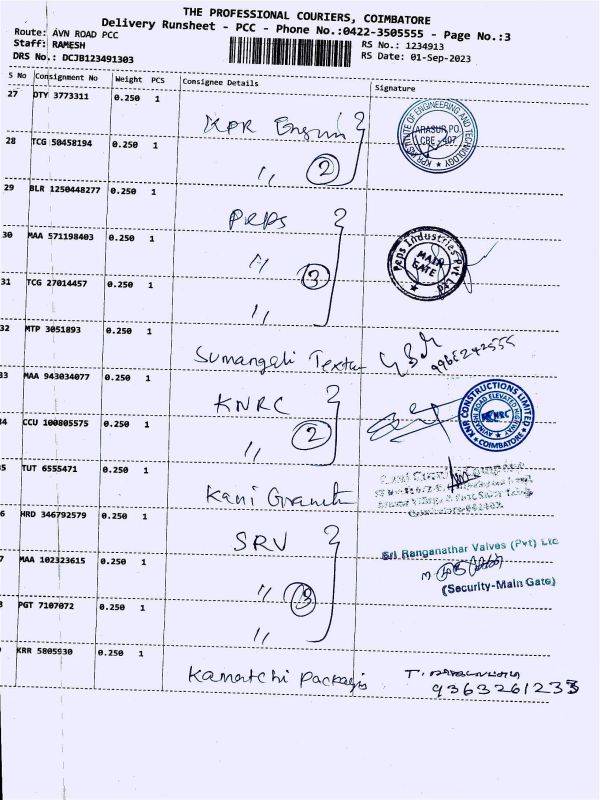 THE PROFESSIONAL COURIERS, COIMBATORE
Delivery Runsheet - PCC - Phone No.:0422-3505555 - Page No.:3
Route: AVN ROAD PCC
Staff: RAMESH
DRS No.: DCJB123491303
RS No.: 1234913
RS Date: 01-Sep-2023
S No Consignment No Weight PCS Consignee Details Signature
27 DTY 3773311 0.250 1
KPR Engine
KPR INSTITUTE OF ENGINEERING AND TECHNOLOGY
ARASUR PO.
CBE - 407
28 TCG 50458194 0.250 1
,, 2
29 BLR 1250448277 0.250 1
PEPS
30 MAA 571198403 0.250 1
,, 3
Peps Industries Pvt Ltd
MAIN
GATE
31 TCG 27014457 0.250 1
,,
32 MTP 3051893 0.250 1
Sumangali Textu
33 MAA 943034077 0.250 1
KNRC
KNR CONSTRUCTIONS LIMITED
AVINASHI ROAD ELEVATED HIGHWAY
KNRC
COIMBATORE
34 CCU 100805575 0.250 1
,, 2
35 TUT 6555471 0.250 1
Kani Granit
6 HRD 346792579 0.250 1
SRV
Sri Ranganathar Valves (Pvt) Ltd
7 MAA 102323615 0.250 1
,, 3
(Security-Main Gate)
8 PGT 7107072 0.250 1
,,
KRR 5805930 0.250 1
Kamatchi Packagis
9363261233